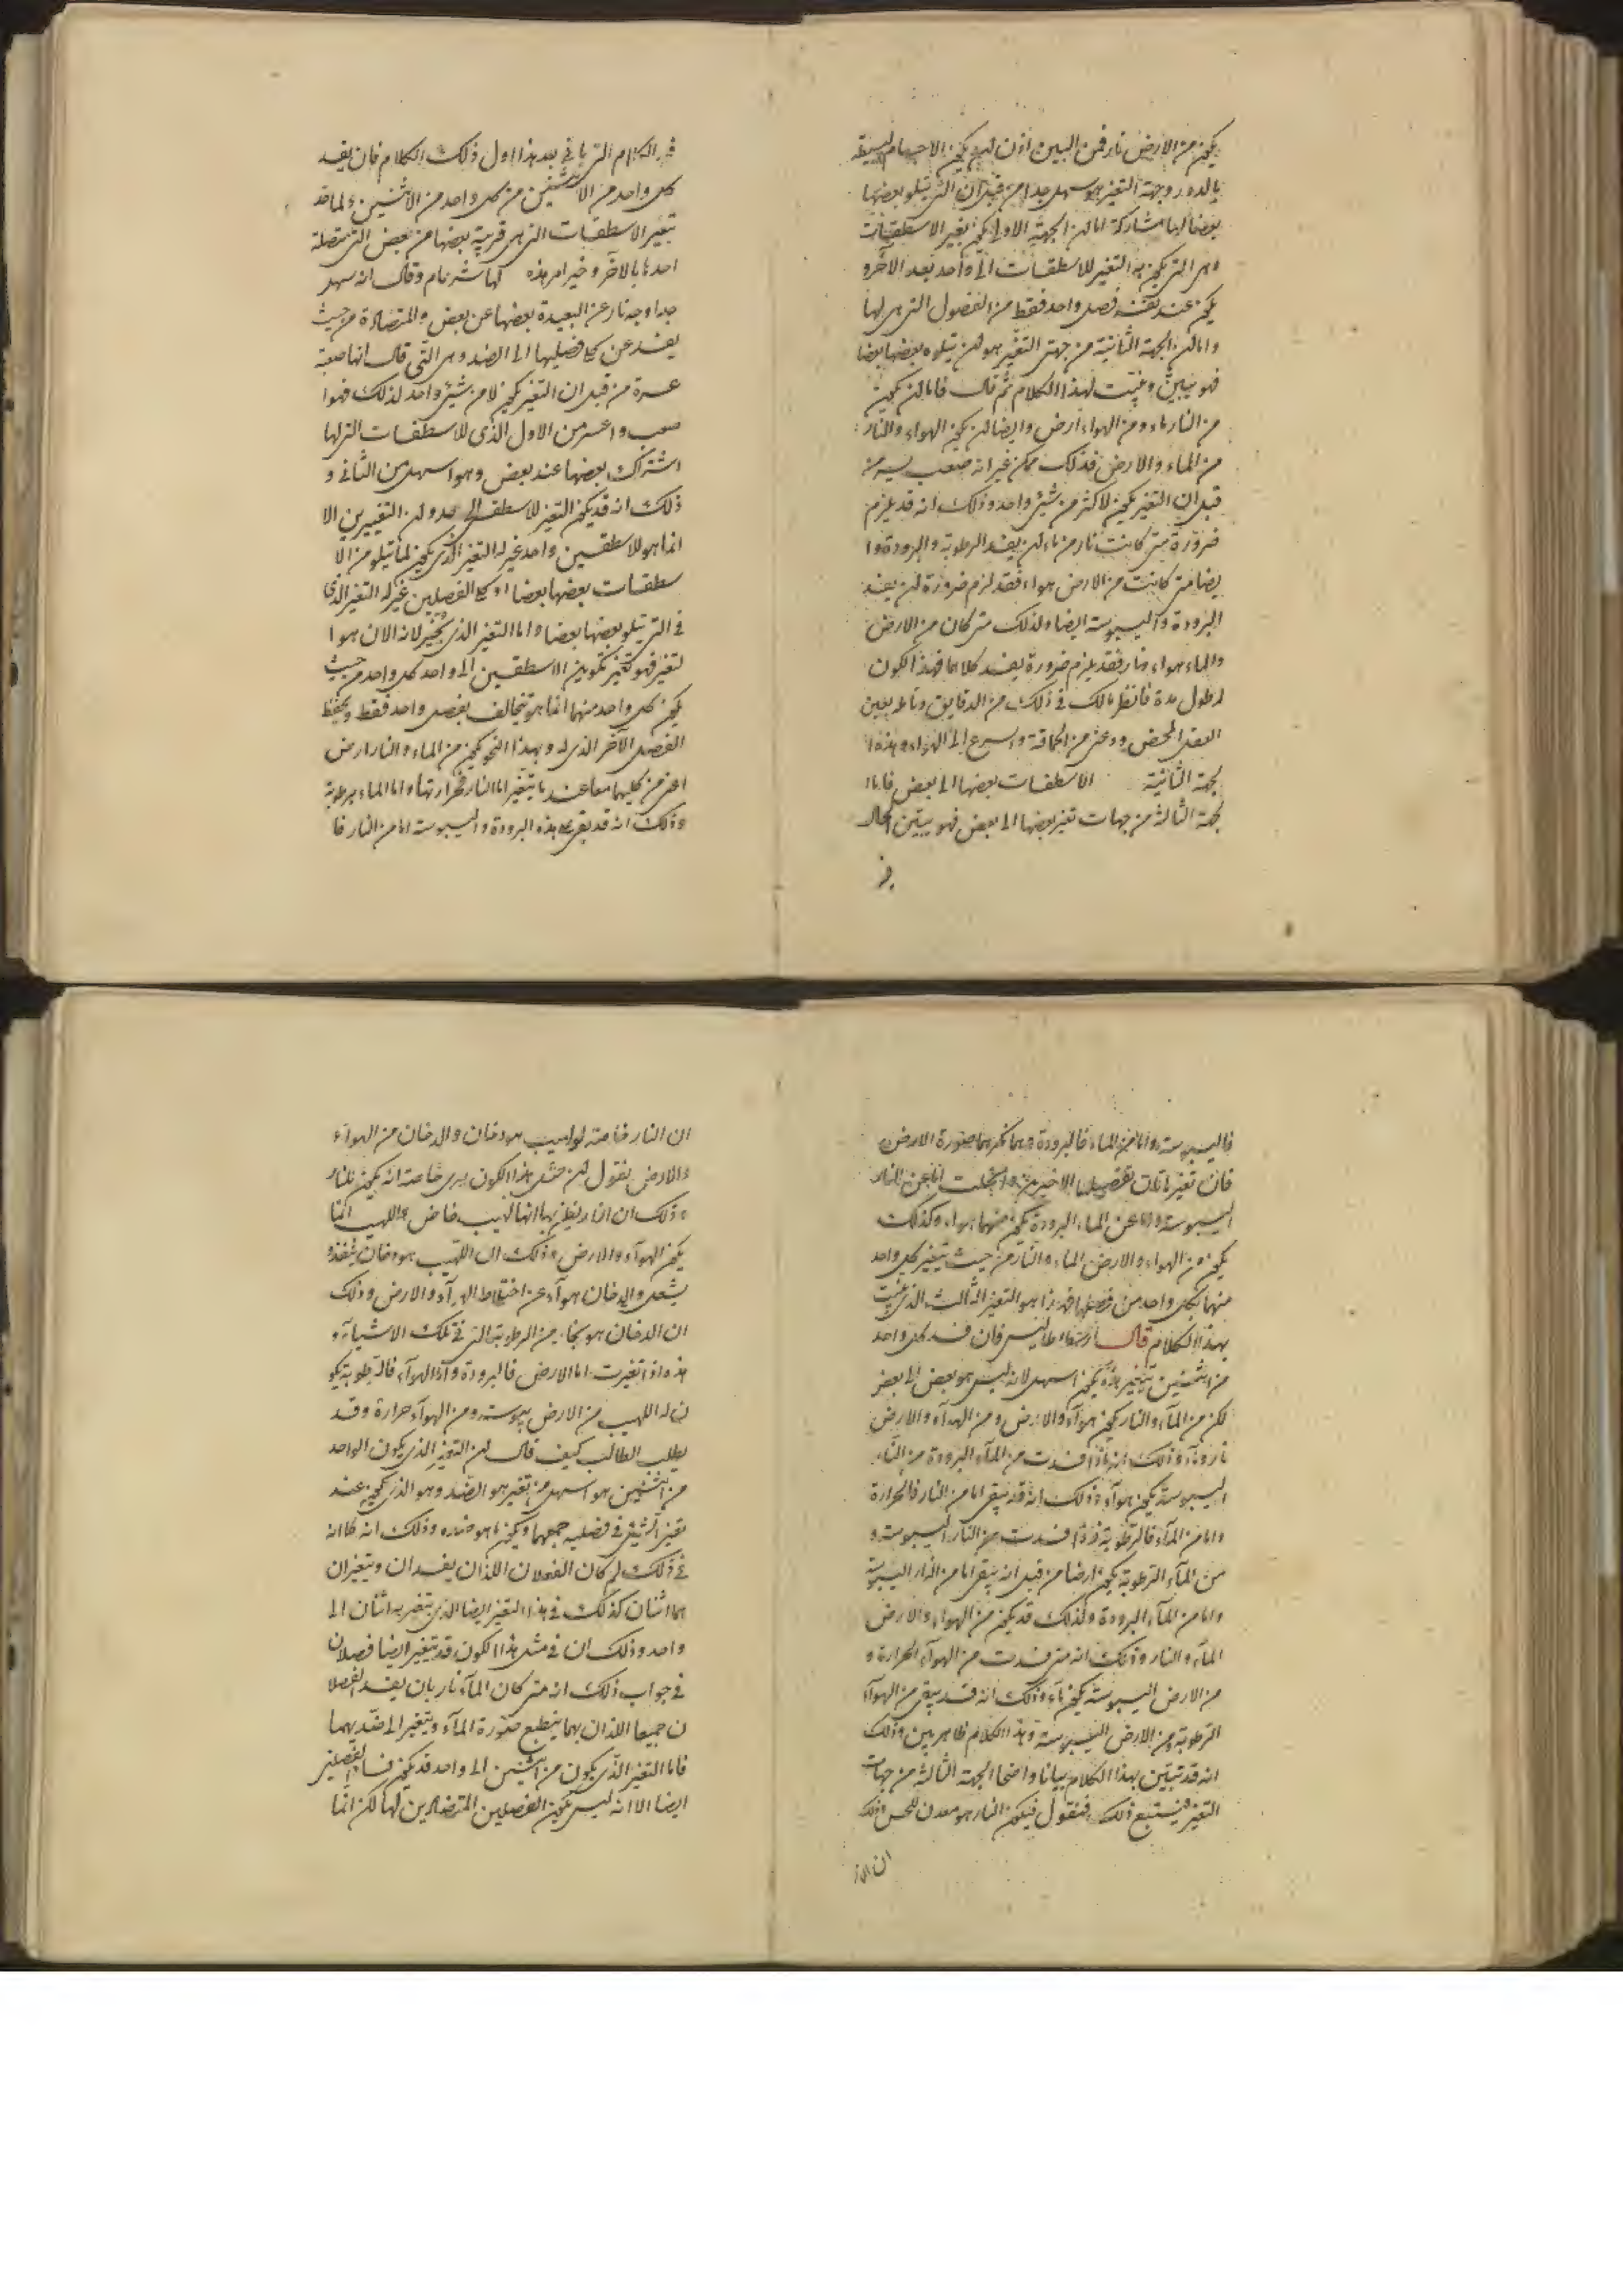 يكون من الارض نار فمن البين اذن ان يكون الاجسام البسيطة
بالدور وجهة التغير هو سهل جدا من قبل ان التى يتلو بعضها
بعضا لها مشاركة اما ان الجهة الاولى يكون تغير الاسطقسات
وهى التى يكون به التغير للاسطقسات الى واحد بعد الآخر و
يكون عند تغير فصل واحد فقط من الفصول التى هى لها
واما ان الجهة الثانية من جهتى التغير هو لمن يتلوه بعضها بعضا
فهو يبين ويثبت لهذا الكلام ثم قال فاما ان يكون
من النار ماء ومن الهواء ارض وايضا ان يكون الهواء والنار
من الماء والارض فذلك ممكن غير انه صعب يسير من
قبل ان التغير يكون لاكثر من شئ واحد وذلك انه قد يلزم
ضرورة متى كانت نار من ماء ان يفسد الرطوبة والبرودة وا
يضا متى كانت من الارض هواء فقد لزم ضرورة ان يفسد
البرودة واليبوسة ايضا ولذلك متى كان من الارض
والماء هواء ونار فقد يلزم ضرورة يفسد كلاهما فهذا الكون
اطول مدة فانظر مالك فى ذلك من الدقايق وتأمله بعين
العقل المحض ودعنى من الحماقة واسرع الى الهواء وهذه ا
لجهة الثانية الاسطقسات بعضها الى بعض فاما ا
لجهة الثالثة من جهات تغير بعضها الى بعض فهو يبين الحال
فى
فى الكلام التى ياتى بعد هذا اول ذلك الكلام فان يفسد
كل واحد من الاثنين من كل واحد من الاثنين ولما قد
تغير الاسطقسات التى هى قريبة بعضها من بعض التى متصلة
احدها بالآخر وخبر امر هذه كلها شرنام وقال انه سهل
جدا وجه نار عن البعيدة بعضها عن بعض والمتضادة من حيث
يفسد عن كلا فصليها الى الضد وهى التى قال انها صعبة
عسرة من قبل ان التغير يكون لا من شئ واحد لذلك فهوا
صعب واعسر من الاول الذى للاسطقسات التى لها
اشتراك بعضها عند بعض وهو اسهل من الثانى و
ذلك انه قد يكون التغير للاسطقس الى ضده ان التغييرين الا
انما هو للاسطقسين واحد غير ان التغير الذى يكون لما يتلو من الا
سطقسات بعضها بعضا او كلا الفصلين غير ان التغير الذى
فى التى يتلو بعضها بعضا واما التغير الذى يخبر لانه الان هو ا
لتغير فهو كتغير تكوين الاسطقسين الى واحد كل واحد من حيث
يكون كل واحد منهما انما هو يخالف بفصل واحد فقط ويحفظ
الفصل الآخر الذى له وبهذا النحو يكون من الماء والنار ارض
اعنى من كليهما معا عند ما يتغير اما النار فحرارتها واما الماء برطوبة
وذلك انه قد يبقى هذه البرودة واليبوسة اما من النار فا
فاليبوسة واما من الماء فالبرودة وهما كلاهما صورة الارض
فان تغير تانك بفصليها الاخيرين وانحلت اما عن النار
اليبوسة واما عن الماء البرودة يكون منهما هواء وكذلك
يكون من الهواء والارض الماء والنار من حيث يتغير كل واحد
منها بكل واحد من فصليها فهذا هو التغير الثالث الذى يثبت
بهذا الكلام قال ارسطاطاليس فان فسد كل واحد
من اثنين يتغير هذه يكون اسهل لانه ليس هو بعض الى بعض
لكن من الماء والنار يكون هواء والارض ومن الهواء والارض
نار وماء وذلك انه اذا فسدت من الماء البرودة من النار
اليبوسة يكون هواء وذلك انه قد يبقى اما من النار فالحرارة
واما من الماء فالرطوبة فاذا فسدت من النار اليبوسة و
من الماء الرطوبة يكون ارضا من قبل انه يبقى اما من النار اليبوسة
واما من الماء البرودة وكذلك قد يكون من الهواء والارض
الماء والنار وذلك انه متى فسدت من الهواء الحرارة و
من الارض اليبوسة يكون ماء وذلك انه قد يبقى من الهواء
الرطوبة ومن الارض اليبوسة وهذا الكلام ظاهر بين وذلك
انه قد تبين بهذا الكلام بيانا واضحا الجهة الثالثة من جهات
التغير ويستتبع ذلك فنقول فيكون النار هو معدن للحس وذلك
ان النار
ان النار خاصة لواهيب هو دخان والدخان من الهواء
والارض بقول ان مثل هذا الكون يرى خاصة انه يكون للنار
وذلك ان النار يظن بها انها لهيب خاص واللهيب انما
يكون الهواء والارض وذلك ان اللهيب هو دخان ينفذه
يشعل والدخان هواء عن اختلاط الهواء والارض وذلك
ان الدخان هو بخار من الرطوبة التى فى تلك الاشياء و
هذه اذا تغيرت اما الارض فالبرودة واما الهواء فالرطوبة يكو
ن له اللهيب من الارض يبوسة ومن الهواء حرارة وقد
يطلب الطالب كيف قال ان التغير الذى يكون الواحد
من اثنين هو اسهل من تغير هو الضد وهو الذى يكون عند
تغير الشئ فى فصليه جميعها ويكون ما هو ضده وذلك انه كما انه
فى ذلك لم كان الفصلان اللذان يفسدان ويتغيران
هما اثنان كذلك فى هذا التغير ايضا الذى يتغير به اثنان الى
واحد وذلك ان فى مثل هذا الكون قد يتغير ايضا فصلان
فى جواب ذلك انه متى كان الماء نار بان يفسد الفصلا
ن جميعا اللذان بهما ينطبع صورة الماء ويتغير الى ضديهما
فاما التغير الذى يكون من اثنين الى واحد قد يكون فساد الفصلين
ايضا الا انه ليس يكون الفصلين المتضادين لها لكن انما